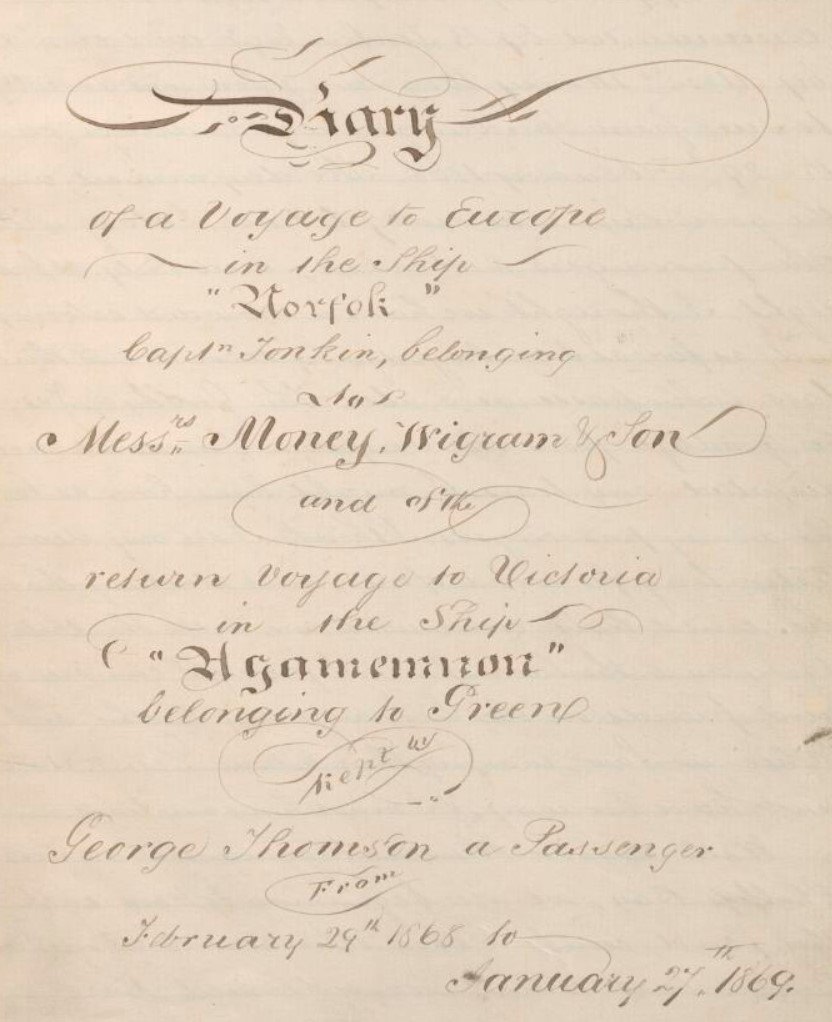 Diary
of a Voyage to Europe
in the Ship
"Norfok"
Captn Tonkin, belonging
To
Messrs Money, Wigram & Son
and of the
return Voyage to Victoria
in the Ship
"Agamemnon"
belonging to Green
Kept by
George Thomson a Passenger
From
February 29th 1868 to
January 27th, 1869.